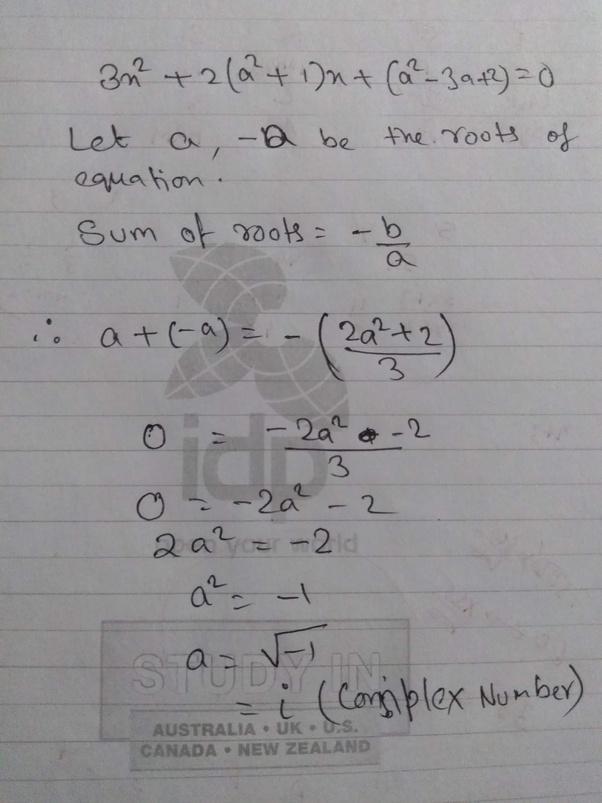 3x² + 2(a² + 1)x + (a² - 3a + 2) = 0
Let a, -a be the roots of
equation.
Sum of roots = - b/a
∴ a + (-a) = - (2a² + 2 / 3)
0 = -2a² - 2 / 3
0 = -2a² - 2
2a² = -2
a² = -1
a = √-1
= i (Complex Number)
idp
your world
STUDY IN
AUSTRALIA • UK • U.S.
CANADA • NEW ZEALAND